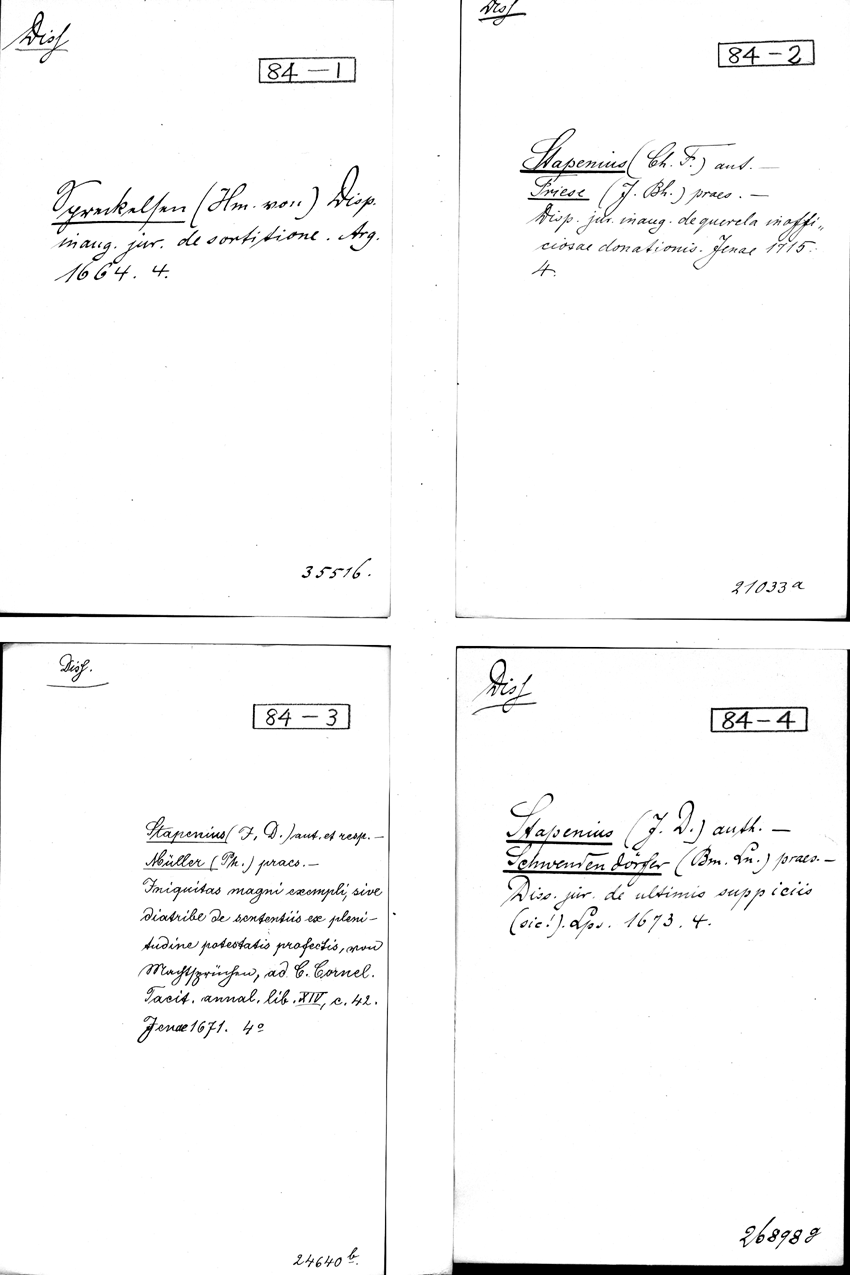 Diss
84-1
Spreckelsen (Hm. von) Disp.
inaug. jur. de sortitione. Arg.
1664. 4.
35516.
Diss
84-2
Stapenius (Ch. F.) aut. —
Friese (J. Bh.) praes. —
Disp. jur. inaug. de querela inoffi„
ciosae donationis. Jenae 1715.
4.
21033a
Diss.
84-3
Stapenius (J. D.) aut. et resp. —
Müller (Ph.) praes. —
Iniquitas magni exempli, sive
diatribe de sententiis ex pleni-
tudine potestatis profectis, von
Machtsprüchen, ad C. Cornel.
Tacit. annal. lib. XIV, c. 42.
Jenae 1671. 4o
24640b.
Diss
84-4
Stapenius (J. D.) auth. —
Schwendendörfer (Bm. Ln.) praes. —
Diss. jur. de ultimis suppiciis
(sic!). Lps. 1673. 4.
26898g